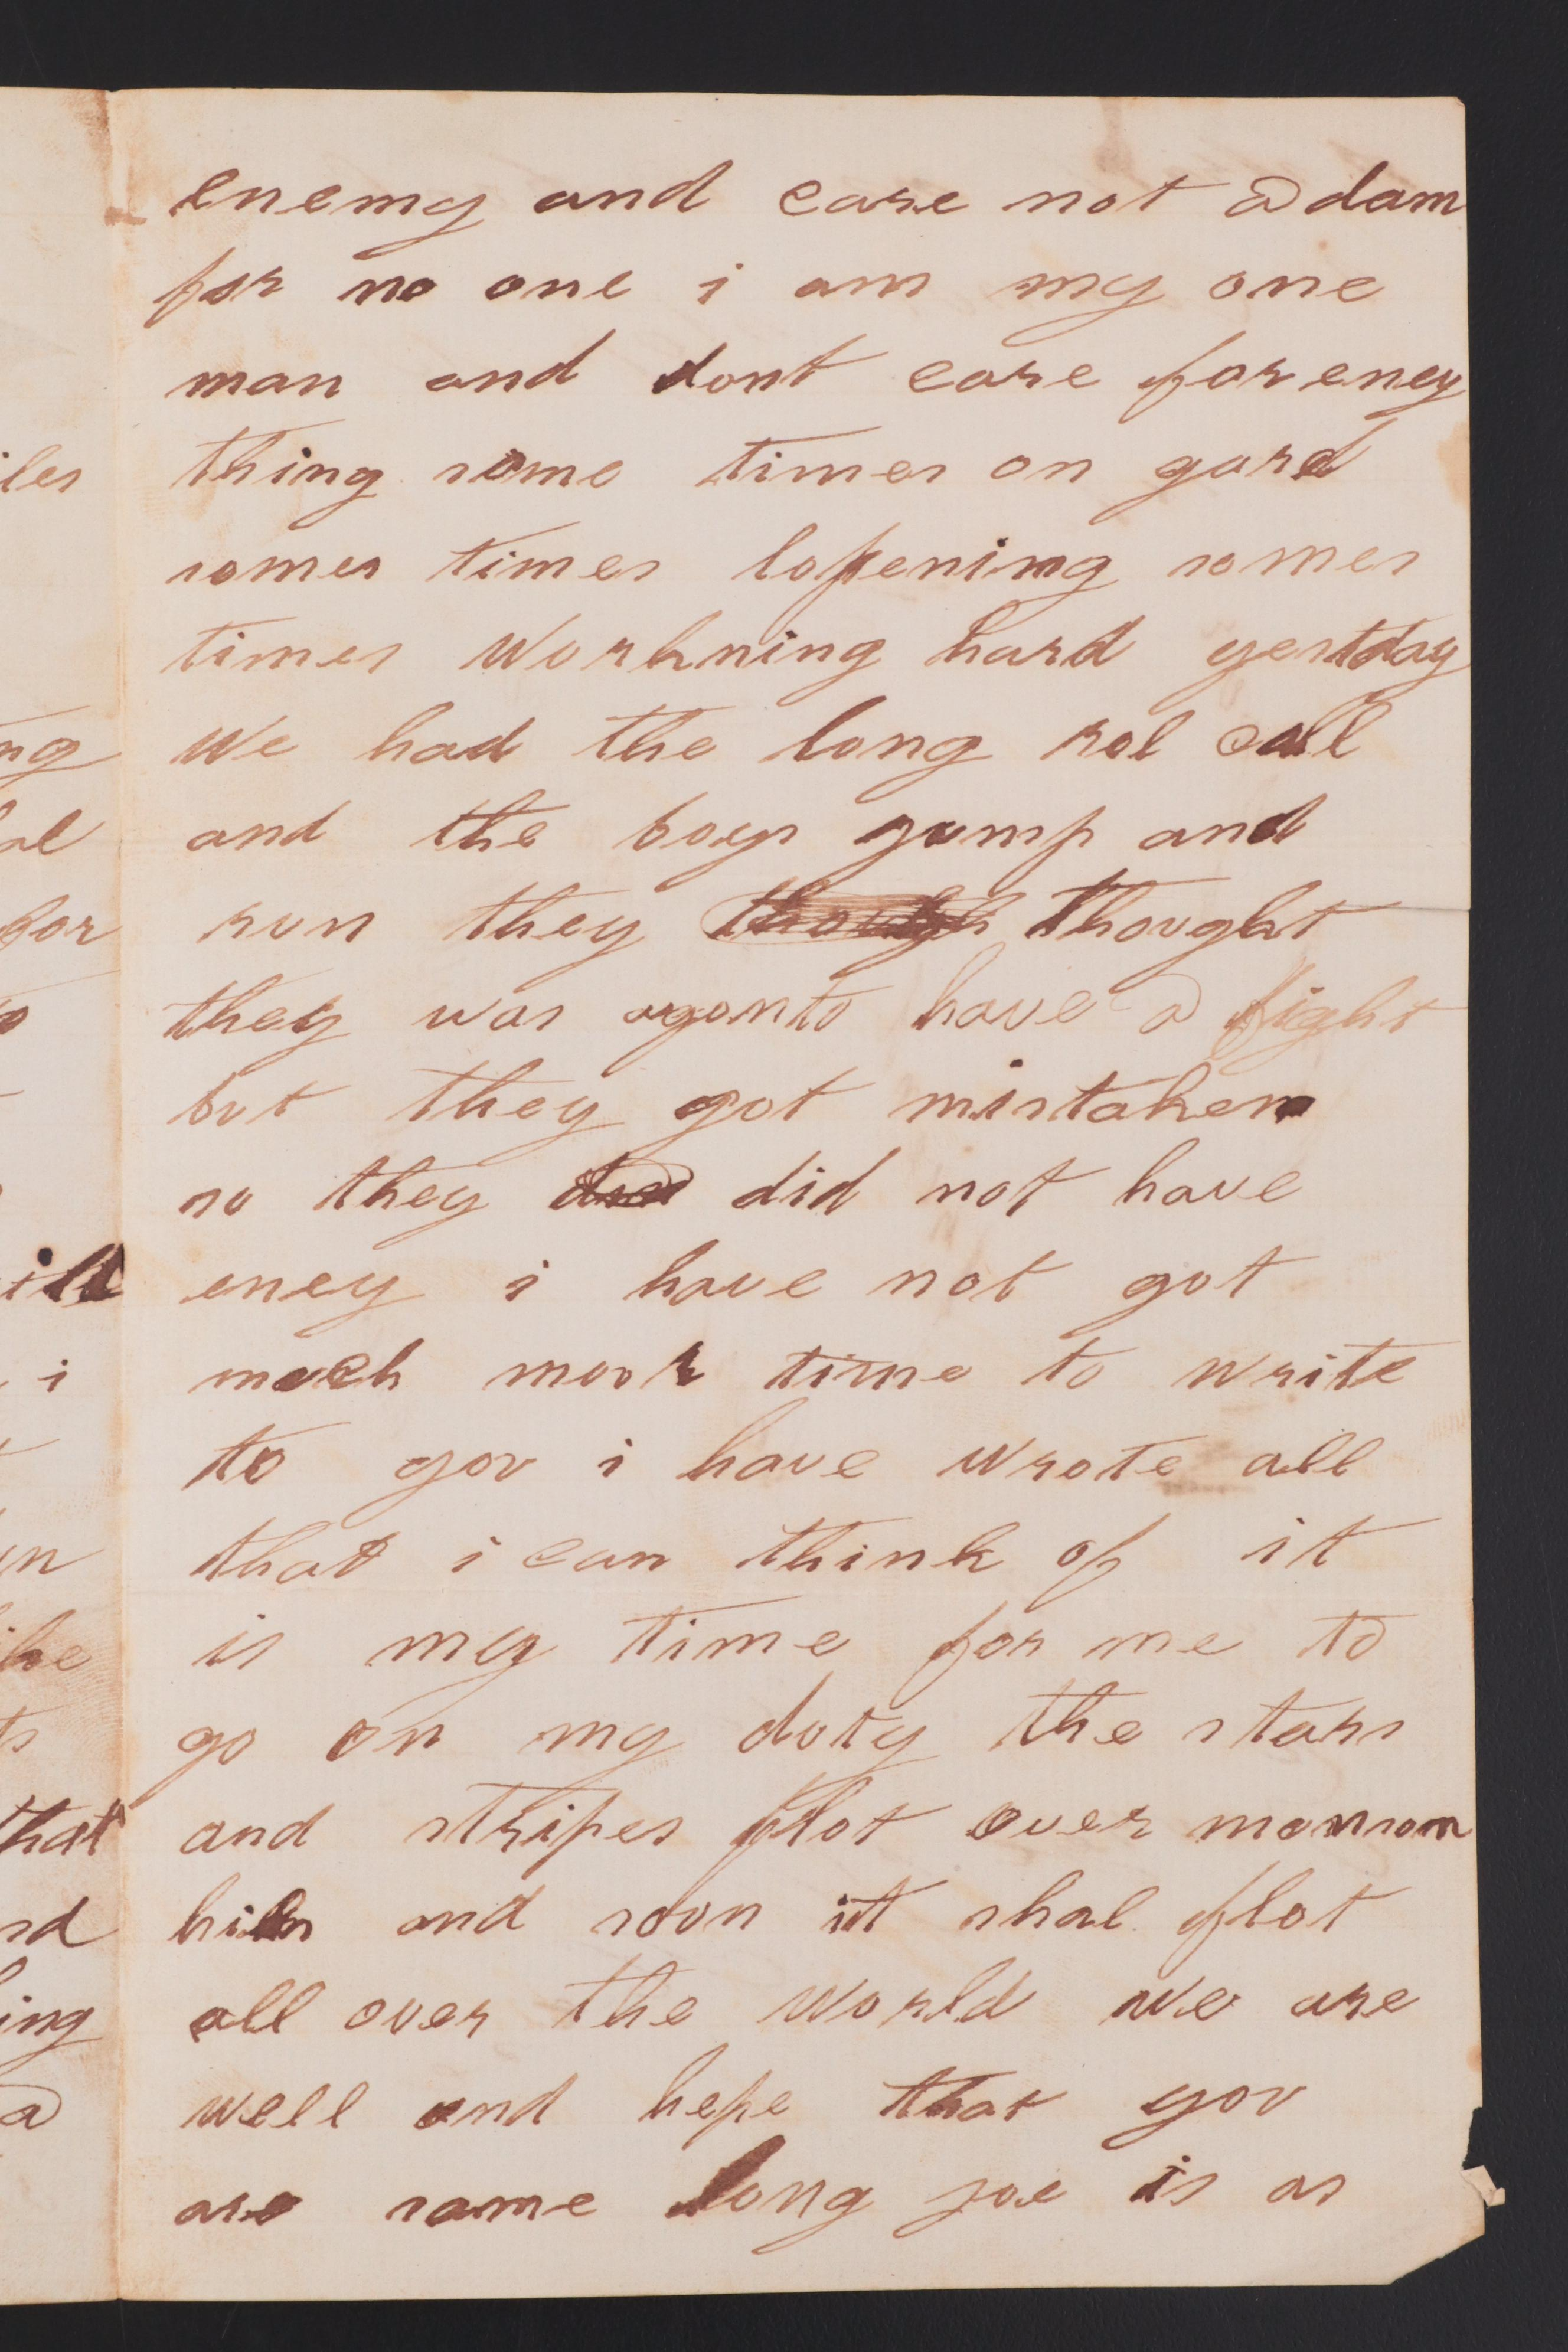 enemy and care not a dam
for no one i am my one
man and dont care for eney
thing some times on gard
somes times lofening somes
times Workning hard yestday
We had the long rol call
and the boys gump and
run they though thought
they was agonto have a fight
but they got mistaken
so they did not have
eney i have not got
much moor time to write
to you i have wrote all
that i can think of it
is my time for me to
go on my duty the stars
and stripes flot over monson
hills and soon it shal flot
all over the World We are
well and hope that you
are same long joe is as
iles
ng
al
for
ill
i
un
that
nd
ing
a